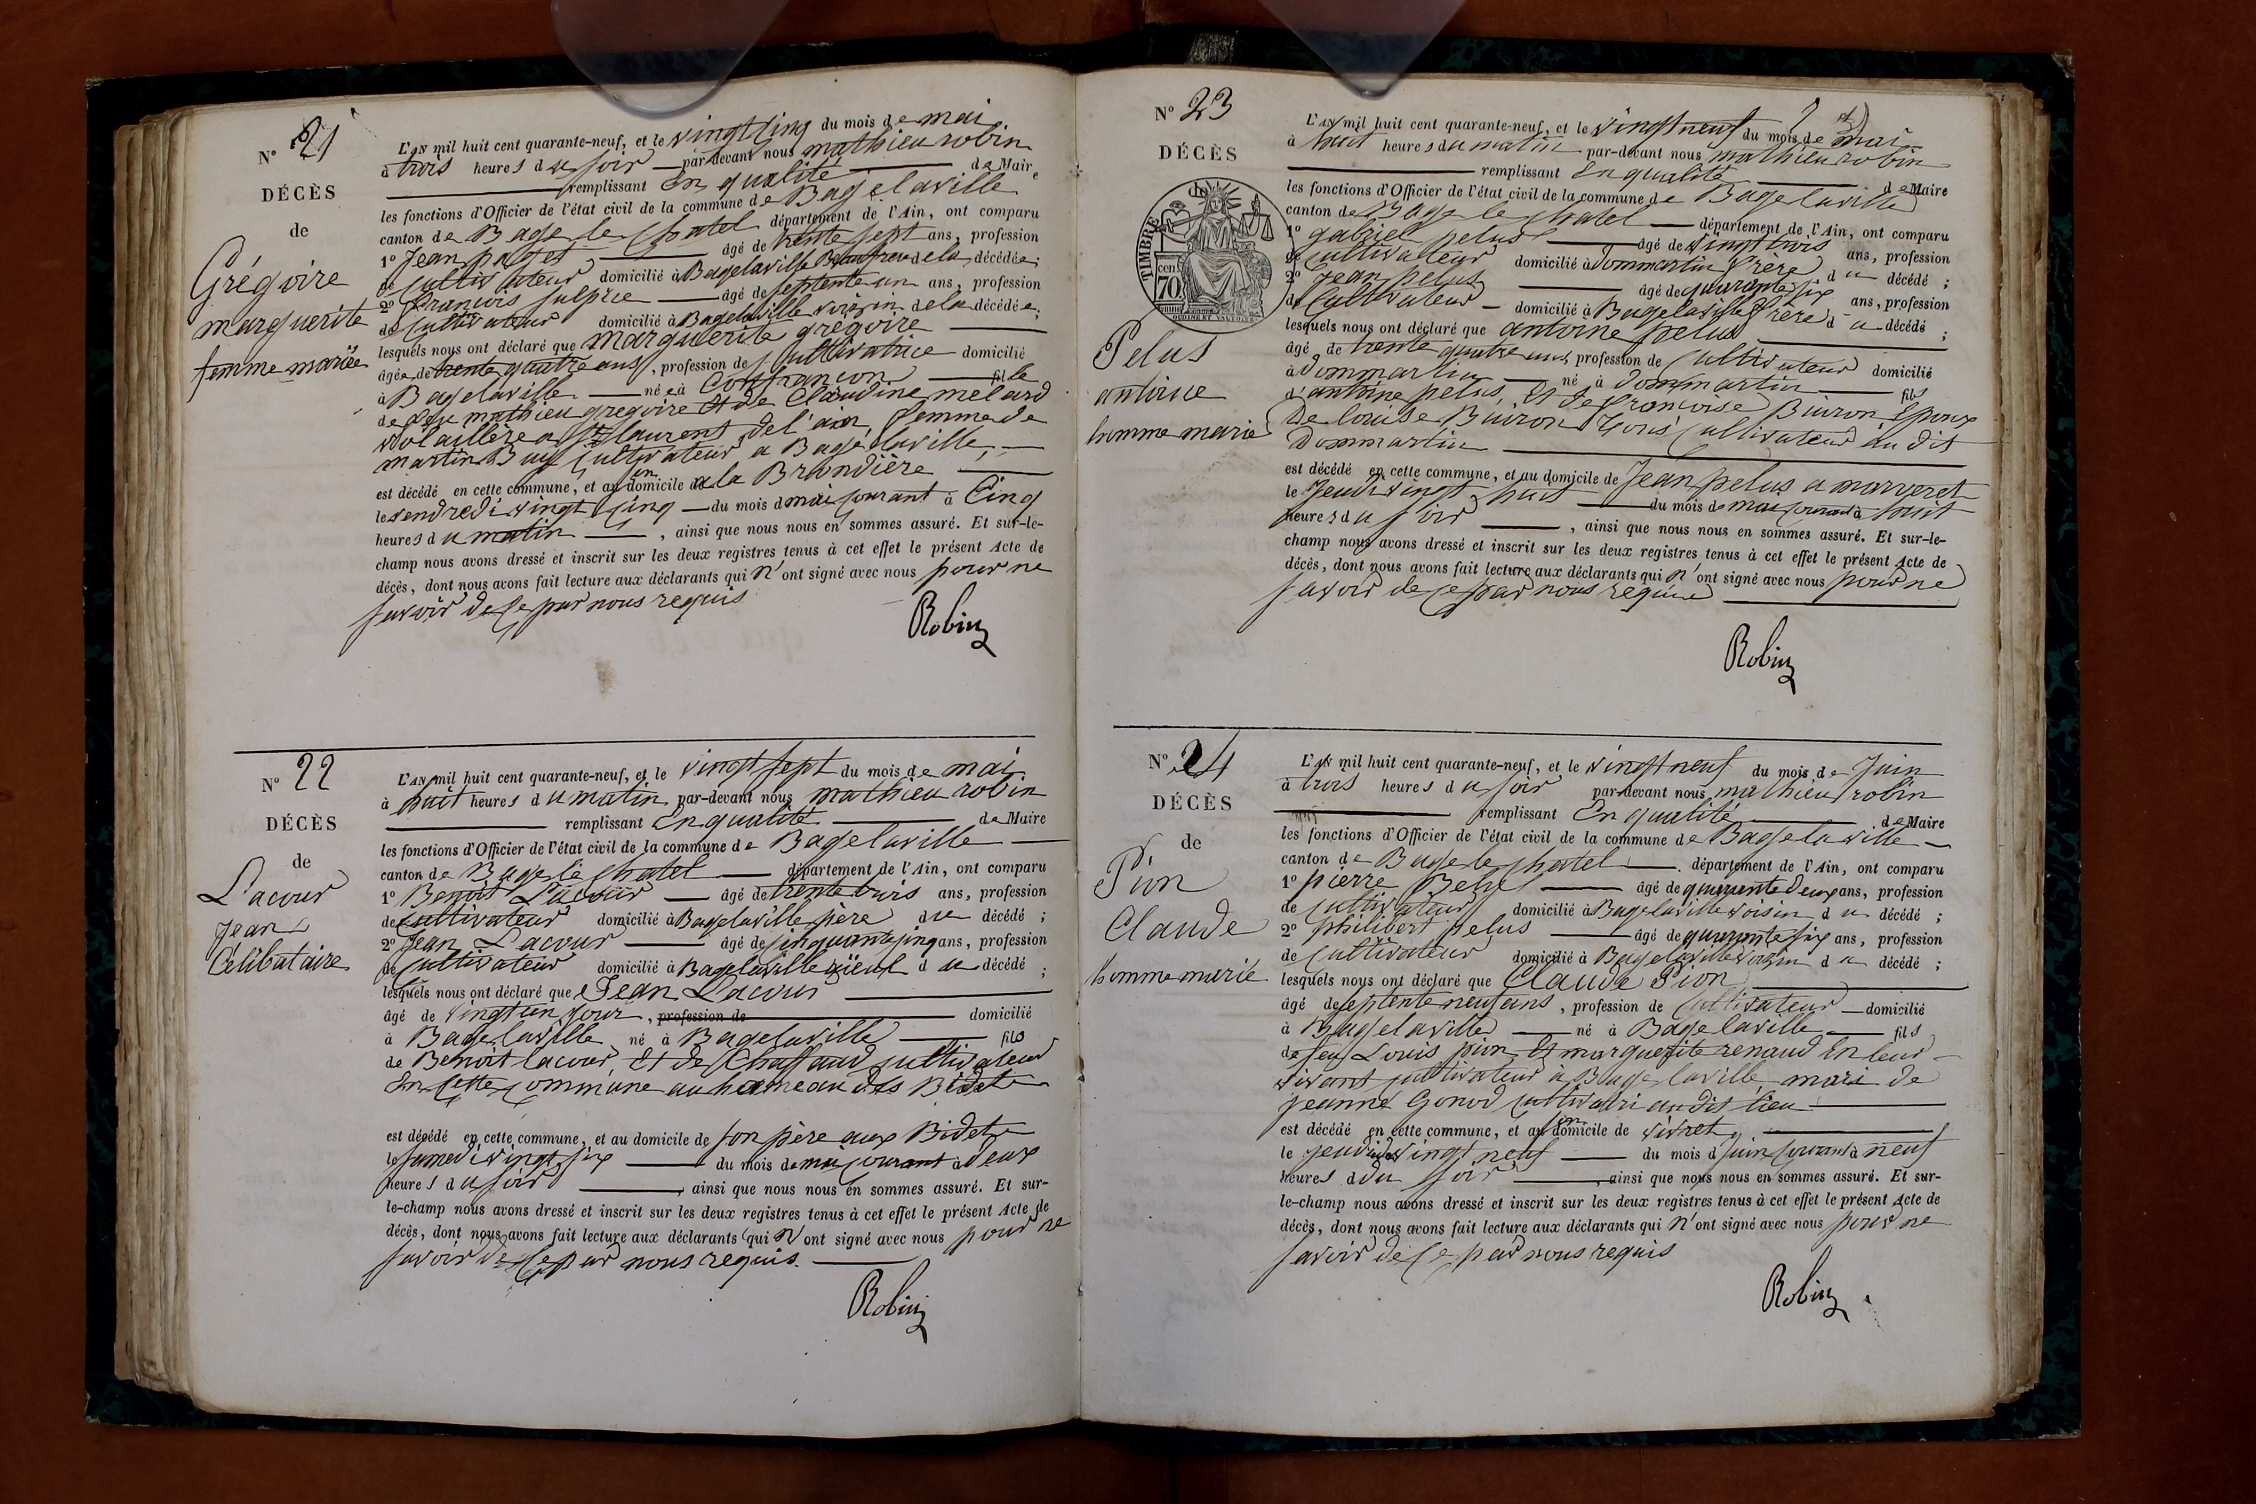 N° 21
DÉCÈS
de
Grégoire
marguerite
femme mariée
L'AN mil huit cent quarante-neuf, et le vingt cinq du mois de mai
à trois heures du soir par-devant nous mathieu robin
remplissant En qualité de Maire
les fonctions d'Officier de l'état civil de la commune de Bagelaville
canton de Bage le Chatel département de l'Ain, ont comparu
1° Jean pages âgé de trente sept ans, profession
de cultivateur domicilié à Bagelaville Beaufrere de la décédée;
2° François sulpice âgé de septente un ans, profession
de cultivateur domicilié à Bagelaville voisin de la décédée;
lesquels nous ont déclaré que marguerite gregoire
âgée de trente quatre ans, profession de Cultivatrice domicilié
à Bagelaville née à Confrancon fille
de feu mathieu gregoire Et de Claudine melard
volaillère a St laurent de l'ain, femme de
martin Buy Cultivateur a Bagelaville,
est décédé en cette commune, et au domicile son a la Brandière
le vendredi vingt cinq du mois de mai courant à Cinq
heures du matin, ainsi que nous nous en sommes assuré. Et sur-le-
champ nous avons dressé et inscrit sur les deux registres tenus à cet effet le présent Acte de
décès, dont nous avons fait lecture aux déclarants qui n'ont signé avec nous pour ne
savoir de ce par nous requis
Robin
N° 22
DÉCÈS
de
Lacour
Jean
Célibataire
L'AN mil huit cent quarante-neuf, et le vingt sept du mois de mai
à huit heures du matin par-devant nous mathieu robin
remplissant En qualité de Maire
les fonctions d'Officier de l'état civil de la commune de Bagelaville
canton de Bage le Chatel département de l'Ain, ont comparu
1° Benoit Lacour âgé de trente trois ans, profession
de cultivateur domicilié à Bagelaville père du décédé;
2° Jean Lacour âgé de cinquante cinq ans, profession
de cultivateur domicilié à Bagelaville aïeul du décédé;
lesquels nous ont déclaré que Jean Lacour
âgé de vingt un jour, profession de domicilié
à Bagelaville né à Bagelaville fils
de Benoit lacour, Et de Chaffaud cultivateur
En cette commune au hameau des Bidets
est décédé en cette commune, et au domicile de son père aux Bidets
le samedi vingt six du mois de mai courant à deux
heures du soir, ainsi que nous nous en sommes assuré. Et sur-
le-champ nous avons dressé et inscrit sur les deux registres tenus à cet effet le présent Acte de
décès, dont nous avons fait lecture aux déclarants qui n'ont signé avec nous pour ne
savoir de ce par nous requis.
Robin
N° 23
DÉCÈS
de
TIMBRE
70
Pelus
antoine
homme marié
L'AN mil huit cent quarante-neuf, et le vingt neuf du mois de mai
à huit heures du matin par-devant nous mathieu robin
remplissant En qualité de Maire
les fonctions d'Officier de l'état civil de la commune de Bagelaville
canton de Bage le chatel département de l'Ain, ont comparu
1° gabriel pelus âgé de vingt trois ans, profession
de Cultivateur domicilié à dommartin frère du décédé;
2° Jean pelus âgé de quarante six ans, profession
de Cultivateur domicilié à Bagelaville frère du décédé;
lesquels nous ont déclaré que antoine pelus
âgé de trente quatre ans, profession de Cultivateur domicilié
à dommartin né à dommartin fils
d'antoine pelus, Et de françoise Buiron Epoux
De louise Buiron tous Cultivateur au dit
Dommartin
est décédé en cette commune, et au domicile de Jean pelus a marveret
le Jeudi vingt huit du mois de mai courant à huit
heures du soir, ainsi que nous nous en sommes assuré. Et sur-le-
champ nous avons dressé et inscrit sur les deux registres tenus à cet effet le présent Acte de
décès, dont nous avons fait lecture aux déclarants qui n'ont signé avec nous pour ne
savoir de ce par nous requis
Robin
N° 24
DÉCÈS
de
Pion
Claude
homme marié
L'AN mil huit cent quarante-neuf, et le vingt neuf du mois de Juin
à trois heures du soir par-devant nous mathieu robin
remplissant En qualité de Maire
les fonctions d'Officier de l'état civil de la commune de Bagelaville
canton de Bage le chatel département de l'Ain, ont comparu
1° pierre âgé de quarente deux ans, profession
de cultivateur domicilié à Bagelaville voisin du décédé;
2° philibert pelus âgé de quarante six ans, profession
de Cultivateur domicilié à Bagelaville voisin du décédé;
lesquels nous ont déclaré que Claude Pion
âgé de septente neuf ans, profession de Cultivateur domicilié
à Bagelaville né à Bagelaville fils
de feu Louis pion Et marguerite renaud En leur
vivant cultivateur à Bagelaville mari de
jeanne Gonod audit lieu
est décédé en cette commune, et au son domicile de vivret
le jeudi vingt neuf du mois de Juin courant à neuf
heures d du soir, ainsi que nous nous en sommes assuré. Et sur-
le-champ nous avons dressé et inscrit sur les deux registres tenus à cet effet le présent Acte de
décès, dont nous avons fait lecture aux déclarants qui n'ont signé avec nous pour ne
savoir de ce par nous requis
Robin